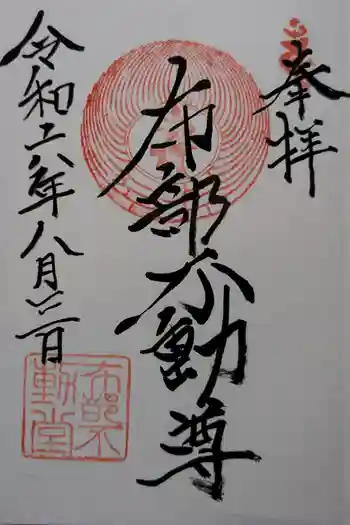 奉拝
布部不動尊
令和二年八月三日
布部不
動堂